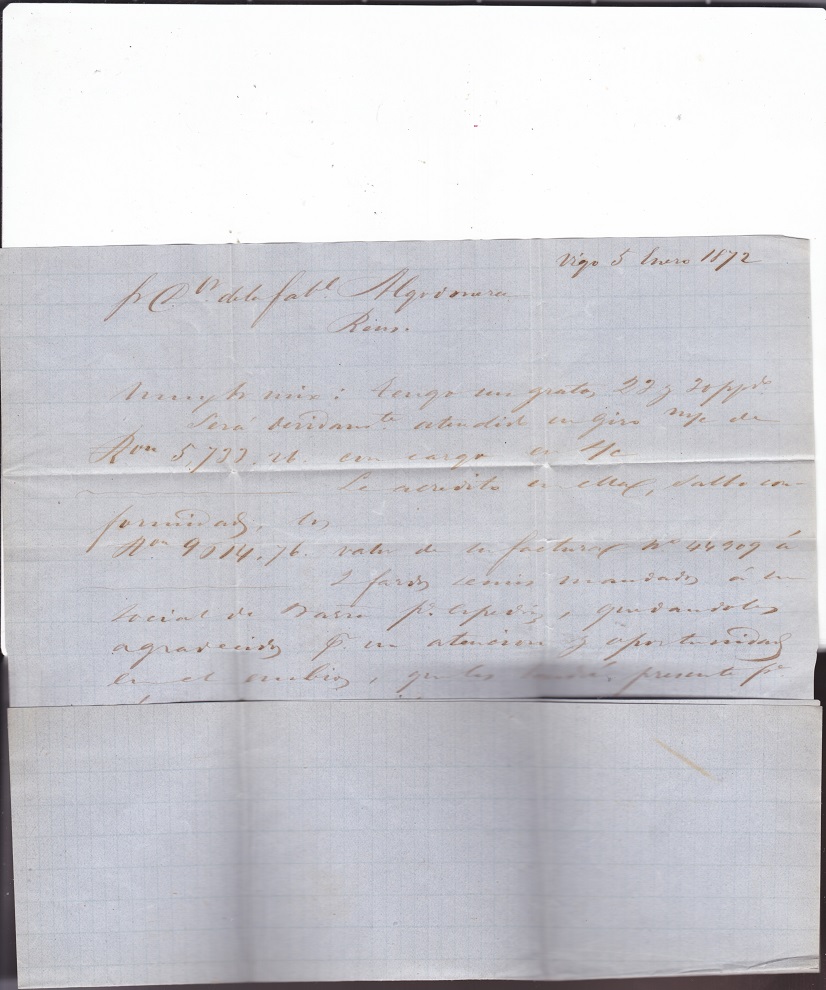 Vigo 5 Enero 1872
Sr Dr. de la fabl. Algodonera
Reus.
Muy Sr mio: tengo sus gratas 23 y 30 ppdo.
Será debidamte. atendido su giro m/c de
Rvn 5,733.26. con cargo en s/c
Le acredito en ella, salvo con-
formidad, los
Rvn 9514.76. valor de su factura no 44909 á
2 fardos mandados á la
social de pa. quedandoles
agradecido pr. su atencion y oportunidad
en el cambio, que les tendré presente pa.